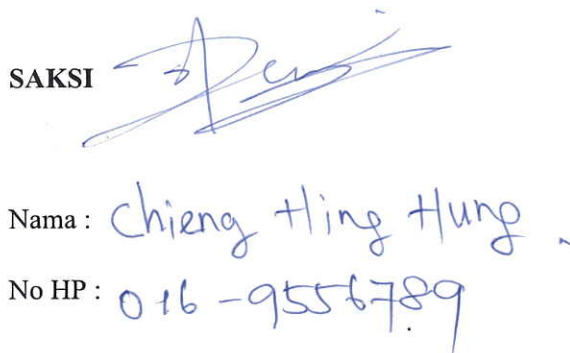 SAKSI
Nama : Chieng Hing Hung
No HP : 016-9556789